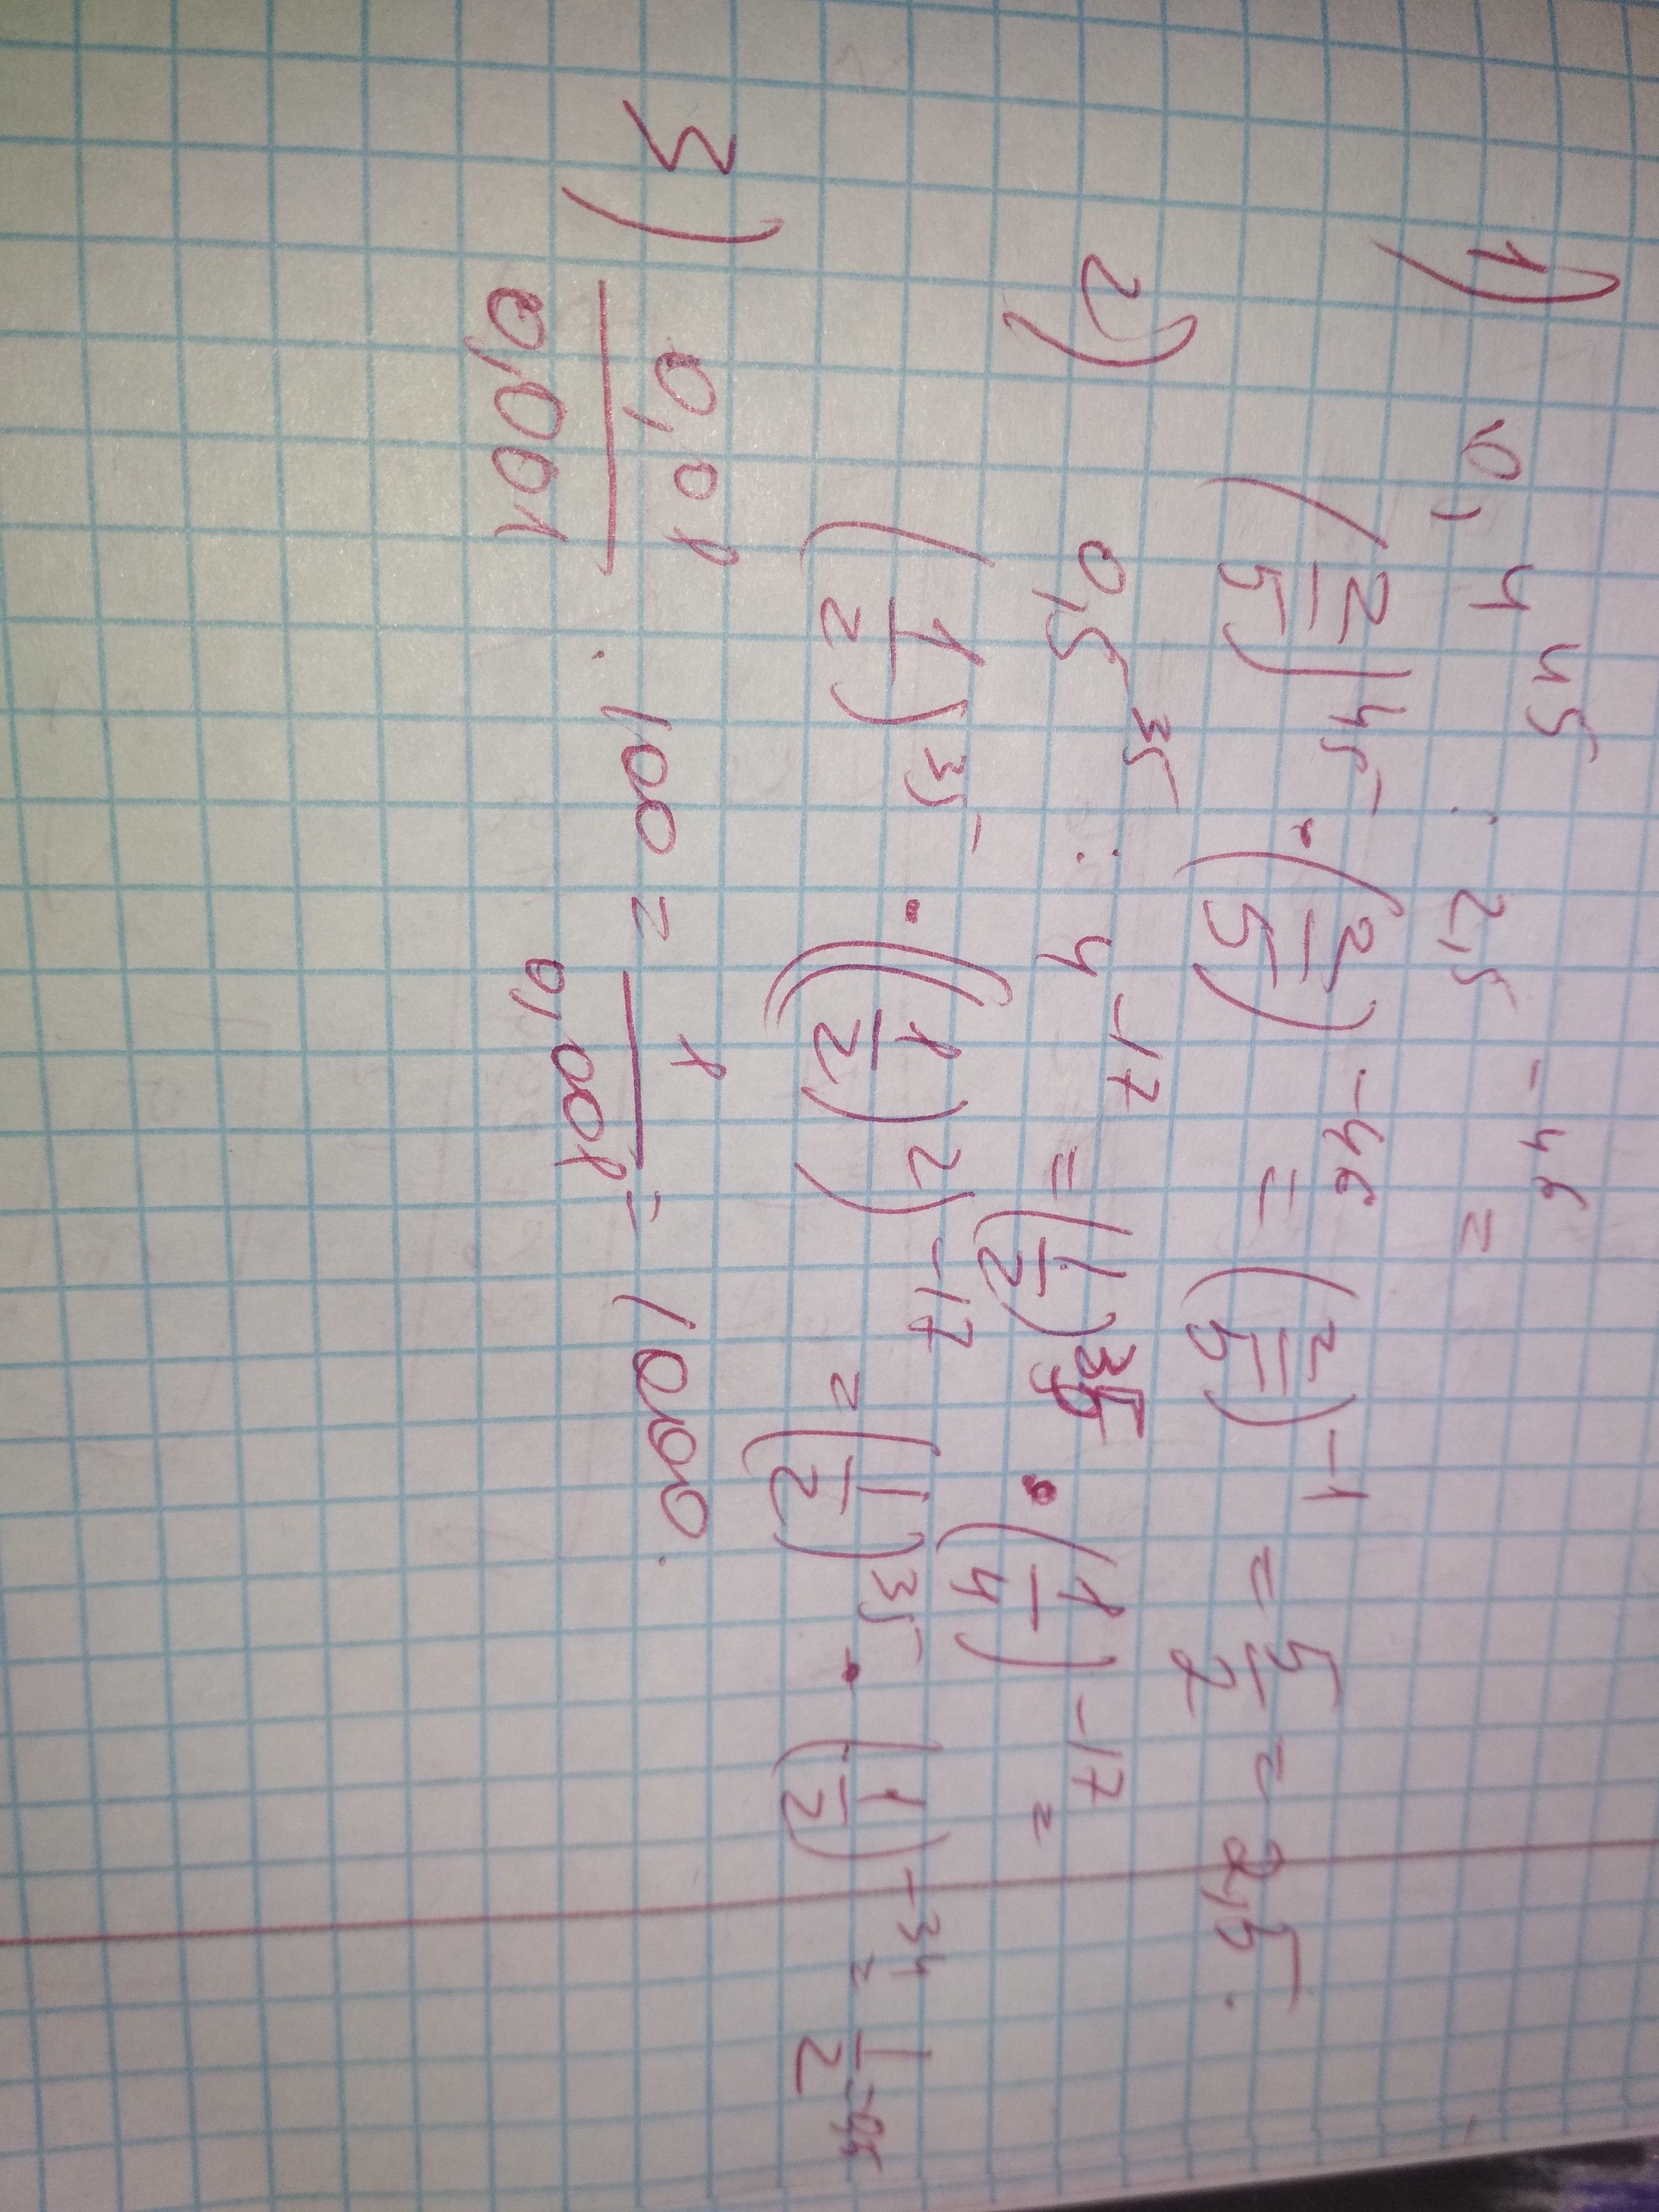 1) 0,4^45 : 2,5^-46 =
(2/5)^45 · (2/5)^-46 = (2/5)^-1 = 5/2 = 2,5.
2) 0,5^35 : 4^-17 = (1/2)^35 · (1/4)^-17 =
(1/2)^35 · ((1/2)^2)^-17 = (1/2)^35 · (1/2)^-34 = 1/2 = 0,5
3) 0,01/0,001 · 100 = 1/0,001 = 1000.